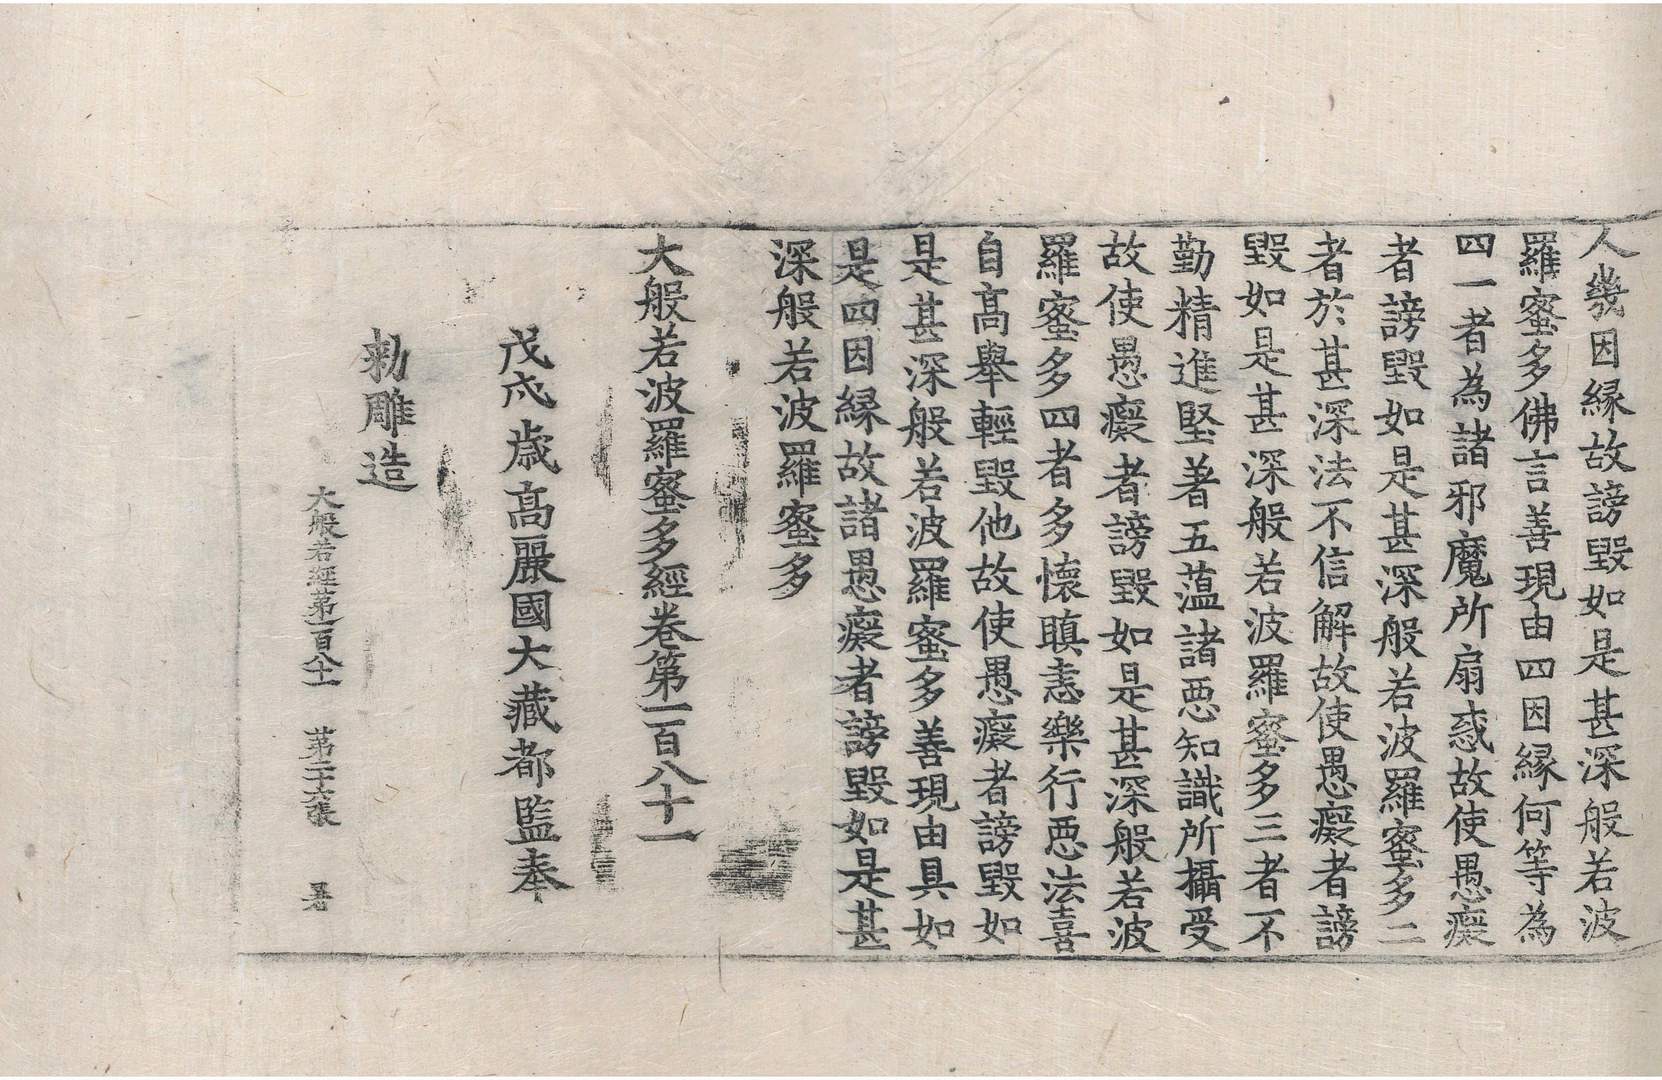 人幾因縁故謗毀如是甚深般若波
羅蜜多佛言善現由四因縁何等為
四一者為諸邪魔所扇惑故使愚癡
者謗毀如是甚深般若波羅蜜多二
者於甚深法不信解故使愚癡者謗
毀如是甚深般若波羅蜜多三者不
勤精進堅著五蕰諸悪知識所攝受
故使愚癡者謗毀如是甚深般若波
羅蜜多四者多懷瞋恚樂行悪法喜
自高舉輕毀他故使愚癡者謗毀如
是甚深般若波羅蜜多善現由具如
是四因縁故諸愚癡者謗毀如是甚
深般若波羅蜜多
大般若波羅蜜多經卷第一百八十一
戊戍歳高麗國大藏都監奉
勅雕造
大般若經第一百八十一 第二十六張